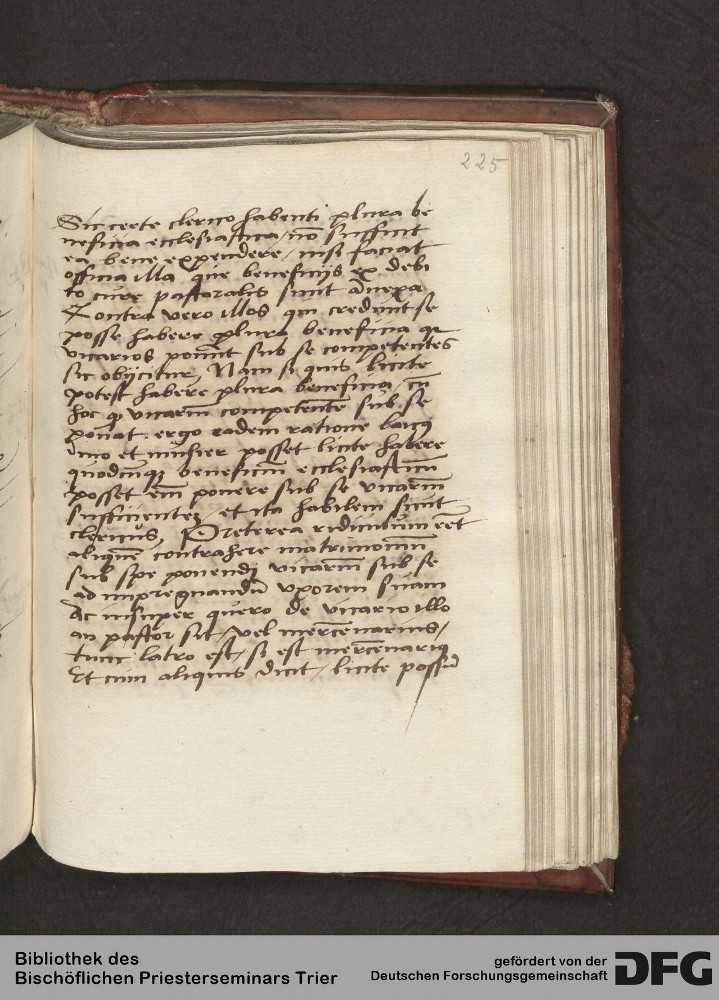 225
Sic certe clerico habenti plura be
neficia ecclesiastica / nō suffiunt
ea bene expendere / nisi faciat
officia illa que beneficijs ex debi
to cure pastoralis sunt añexa
Contra vero illos qui credunt se
posse habere plura beneficia qr
vicarios ponūt sub se competentes
sic obijcitur, Nam si quis licite
potest habere plura beneficia / cū
hoc qd vicariū competentē sub se
ponat. ergo eadem ratione laicꝰ
imo et mulier posset licite habere
quodcūqꝫ beneficiū ecclesiasticū
posset em̄ ponere sub se vicariū
sufficienteꝫ et ita habilem sicut
clericus, Preterea ridiculum eēt
aliquē contrahere matrimoniū
sub spe ponendi vicariū sub se
ad impregnandū vxorem suam
Ac insuper quero de vicario illo
an pastor sit / vel mercēnarius /
tunc latro est / si est mercēnariꝰ
Et cum aliquis dicit / licite possū
Bibliothek des
Bischöflichen Priesterseminars Trier
gefördert von der
Deutschen Forschungsgemeinschaft
DFG